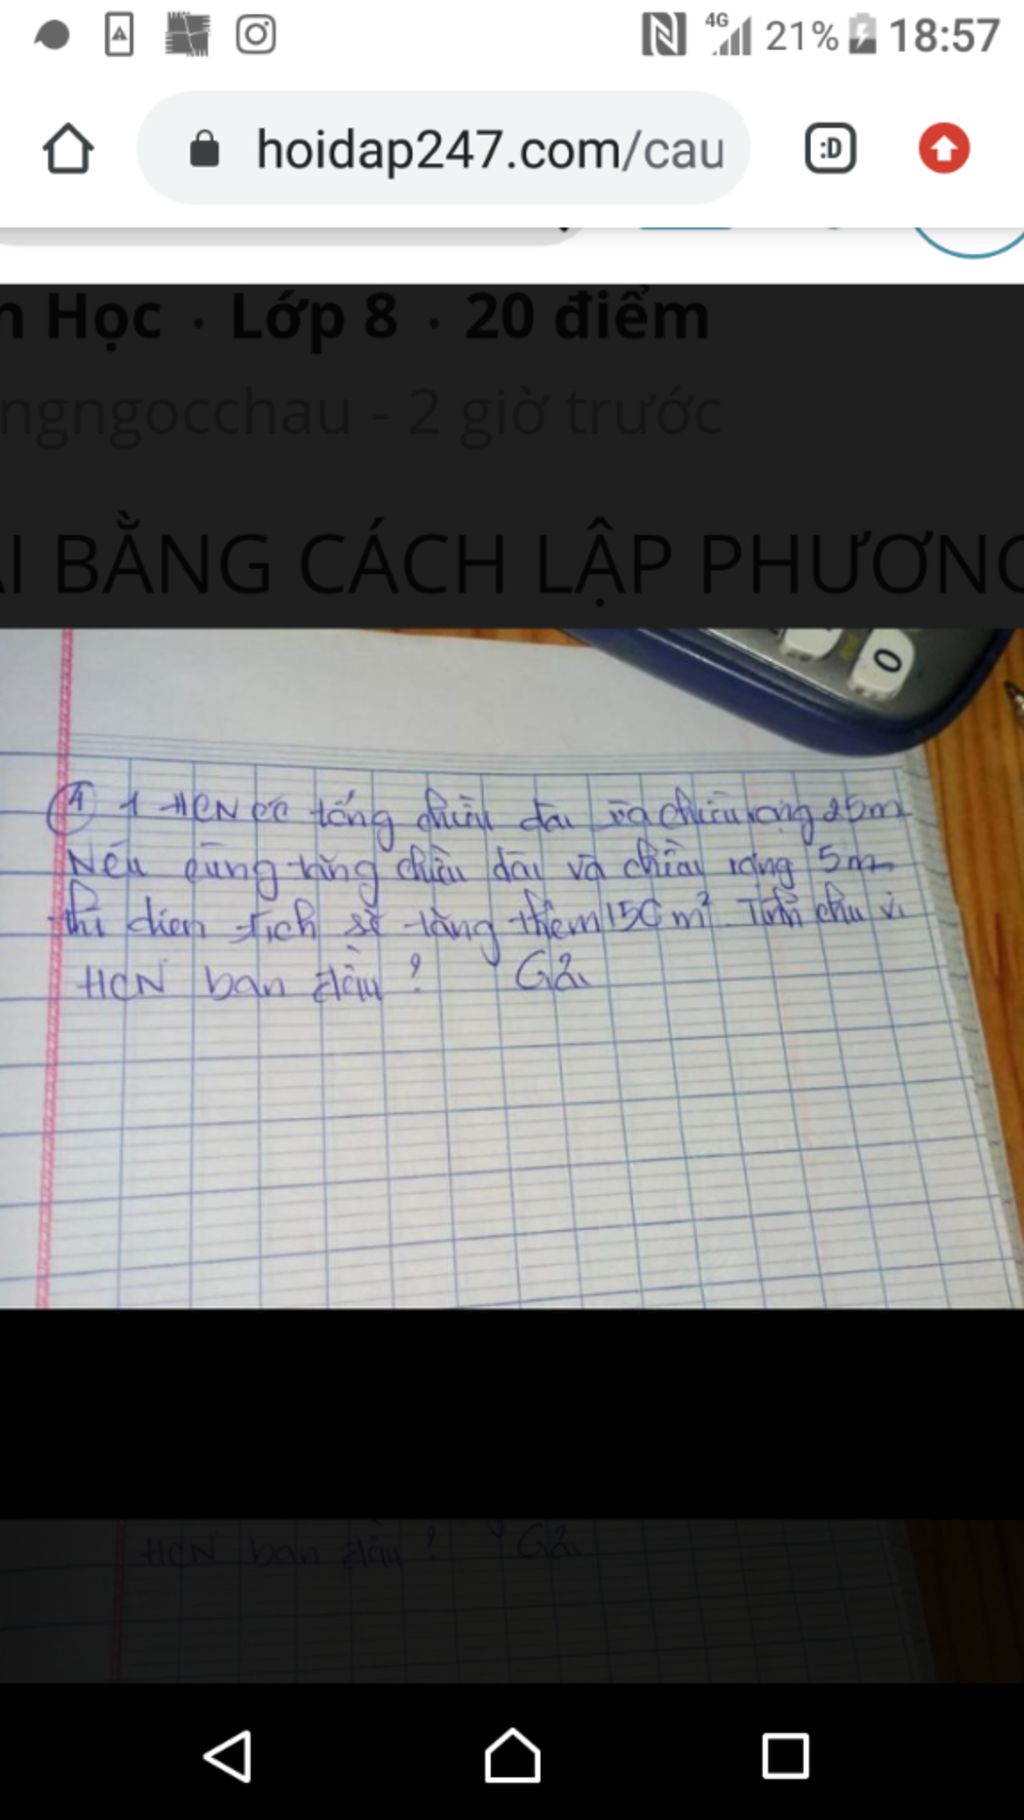 4G 21% 18:57
hoidap247.com/cau
:D
n Học · Lớp 8 · 20 điểm
ngngocchau - 2 giờ trước
ẢI BẰNG CÁCH LẬP PHƯƠNG
0
④ 1 HCN có tổng chiều dài và chiều rộng 25m
Nếu cùng tăng chiều dài và chiều rộng 5m
thì diện tích sẽ tăng thêm 150m² Tính chu vi
HCN ban đầu ? Giải
HCN ban đầu ? Giải